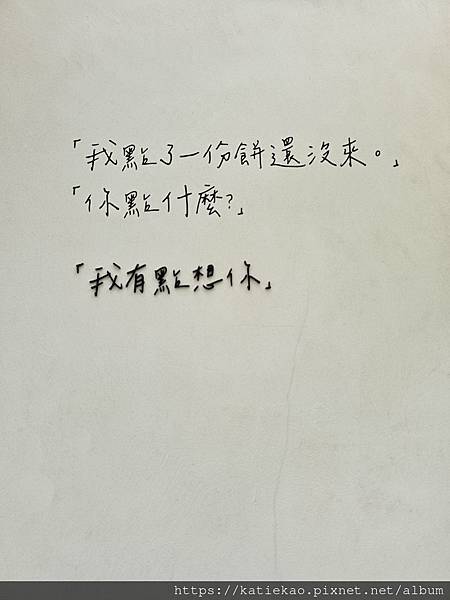 「我點了一份餅還沒來。」
「你點什麼?」
「我有點想你」
https://katiekao.pixnet.net/album